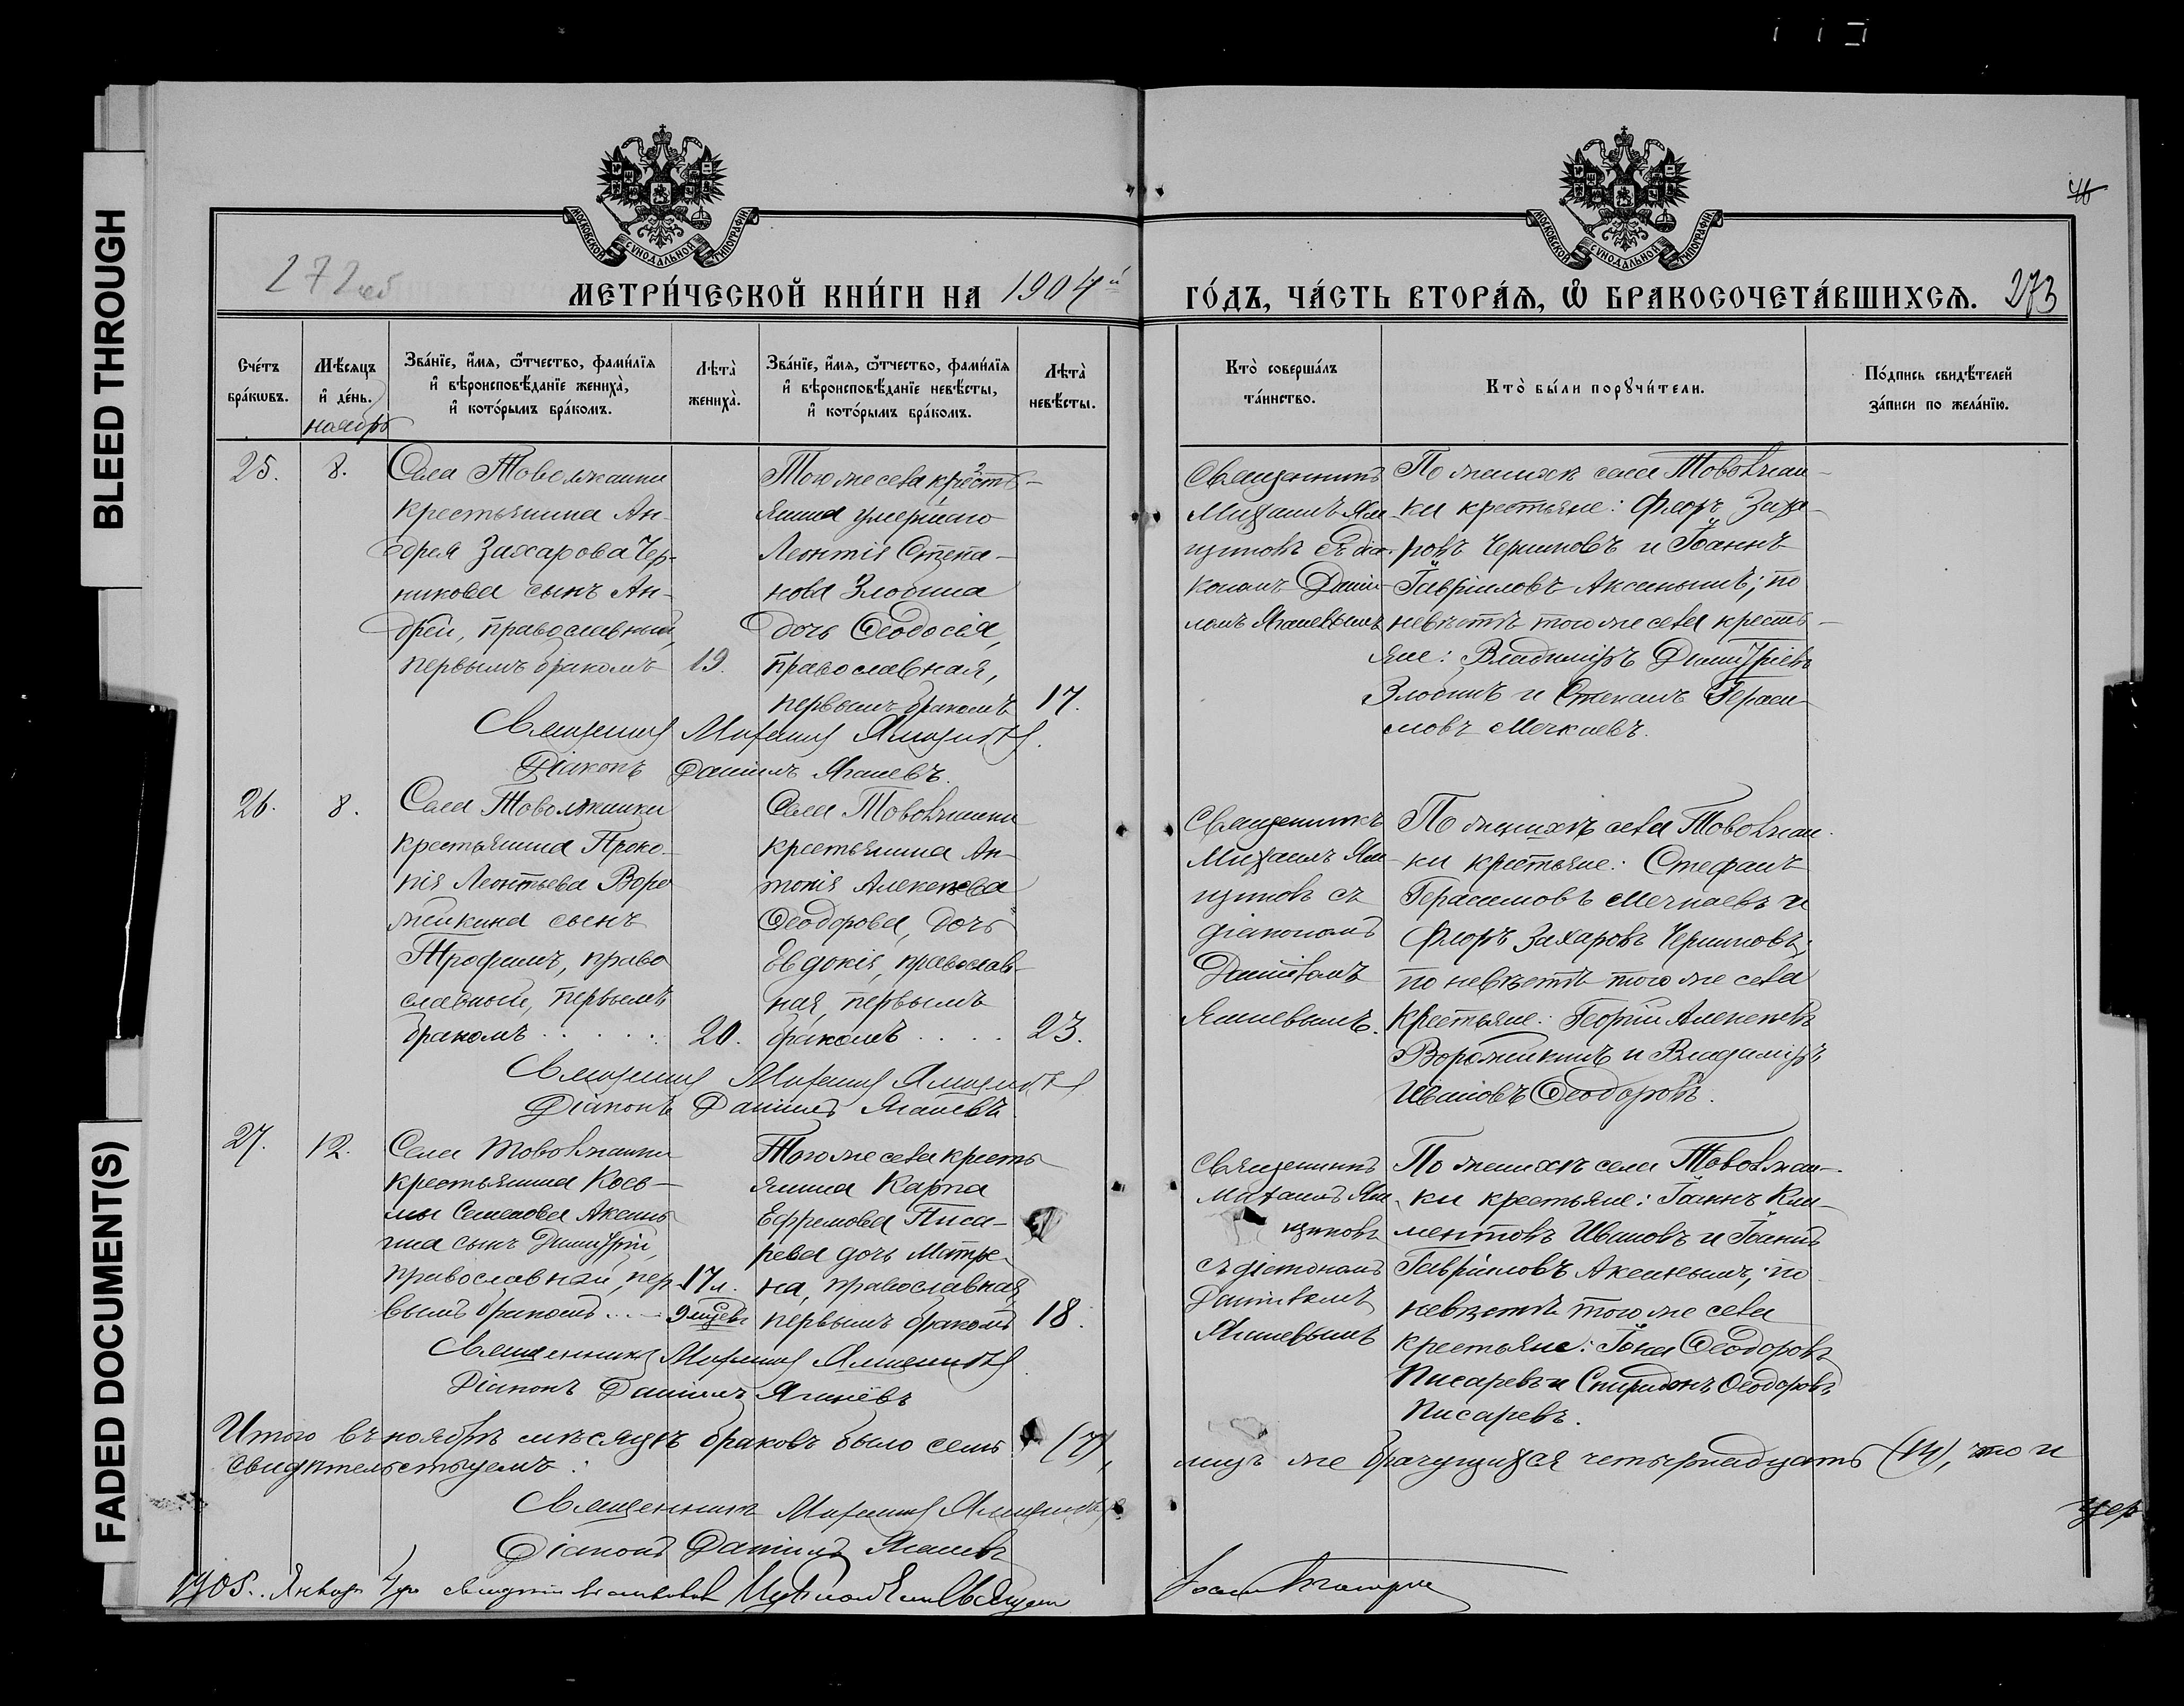 BLEED THROUGH
FADED DOCUMENT(S)
МОСКОВСКОЙ СѴНОДАЛЬНОЙ ТИПОГРАФІИ
МОСКОВСКОЙ СѴНОДАЛЬНОЙ ТИПОГРАФІИ
272об
МЕТРИ́ЧЕСКОЙ КНИ́ГИ НА 1904й
ГО́ДЪ, ЧА́СТЬ ВТОРА́Ѧ, Ѽ БРАКОСОЧЕТА́ВШИХСѦ. 273
Сче́тъ бра́кωвъ.
Мѣ́сяцъ и҆ де́нь.
ноябрь
Зва́нїе, и҆́мя, ѻ҆́тчество, фами́лїя и҆ вѣроисповѣ́данїе жениха̀, и҆ кото́рымъ бра́комъ.
Лѣта̀ жениха̀.
Зва́нїе, и҆́мя, ѻ҆́тчество, фами́лїя и҆ вѣроисповѣ́данїе невѣ́сты, и҆ кото́рымъ бра́комъ.
Лѣта̀ невѣ́сты.
Кто̀ соверша́лъ та́инство.
Кто̀ бы́ли порꙋчи́тели.
По́дпись свидѣ́телей за́писи по жела́нїю.
25.
8.
Села Товолжанки
крестьянина Ан-
дрея Захарова Чер-
никова сынъ Ан-
дрей, православный,
первымъ бракомъ
19.
Того же села кресть-
янина умершаго
Леонтія Степа-
нова Злобина
дочь Ѳеодосія,
православная,
первымъ бракомъ
17.
Священникъ
Михаилъ Ям-
щиковъ съ діа-
кономъ Даніи-
ломъ Яганевымъ
По женихѣ села Товолжан-
ки крестьяне: Флоръ Заха-
ровъ Черниковъ и Іоаннъ
Гавріиловъ Аксеньинъ; по
невѣстѣ того же села кресть-
яне: Владиміръ Димитріевъ
Злобинъ и Стефанъ Гераси-
мовъ Мечкаевъ.
Священникъ Михаилъ Ямщиковъ.
Діаконъ Даніилъ Яганевъ.
26.
8.
Села Товолжанки
крестьянина Проко-
пія Леонтьева Воро-
жейкина сынъ
Трофимъ, право
славный, первымъ
бракомъ . . . . .
20.
Села Товолжанки
крестьянина Ан-
тонія Алексеева
Ѳеодорова, дочь
Евдокія, православ-
ная, первымъ
бракомъ . . . .
23.
Священникъ
Михаилъ Ям-
щиковъ съ
діакономъ
Даніиломъ
Яганевымъ.
По женихѣ села Товолжан-
ки крестьяне: Стефанъ
Герасимовъ Мечкаевъ и
Флоръ Захаровъ Черниковъ;
по невѣстѣ того же села
крестьяне: Георгій Алексеевъ
Ворожейкинъ и Владиміръ
Ивановъ Ѳеодоровъ.
Священникъ Михаилъ Ямщиковъ
Діаконъ Даніилъ Яганевъ
27.
12.
Села Товолжанки
крестьянина Кось-
мы Семенова Аксень-
ина сынъ Димитрій,
православный, пер-
вымъ бракомъ . . .
17 л.
9 мѣсяц.
Того же села кресть
янина Карпа
Ефремова Писа-
рева дочь Матре-
на, православная,
первымъ бракомъ
18.
Священникъ
Михаилъ Ям-
щиковъ
съ діакономъ
Даніиломъ
Яганевымъ
По женихѣ села Товолжан-
ки крестьяне: Іоаннъ Кли-
ментовъ Ивановъ и Іоаннъ
Гавріиловъ Аксеньинъ; по
невѣстѣ того же села
крестьяне: Іона Ѳеодоровъ
Писаревъ и Спиридонъ Ѳеодоровъ
Писаревъ.
Священникъ Михаилъ Ямщиковъ
Діаконъ Даніилъ Яганевъ
Итого въ ноябрѣ мѣсяцѣ браковъ было семь (7), лицъ же брачущихся четырнадцать (14), что и
свидѣтельствуемъ:
Священникъ Михаилъ Ямщиковъ
Діаконъ Даніилъ Яганевъ
1905. Января 4го